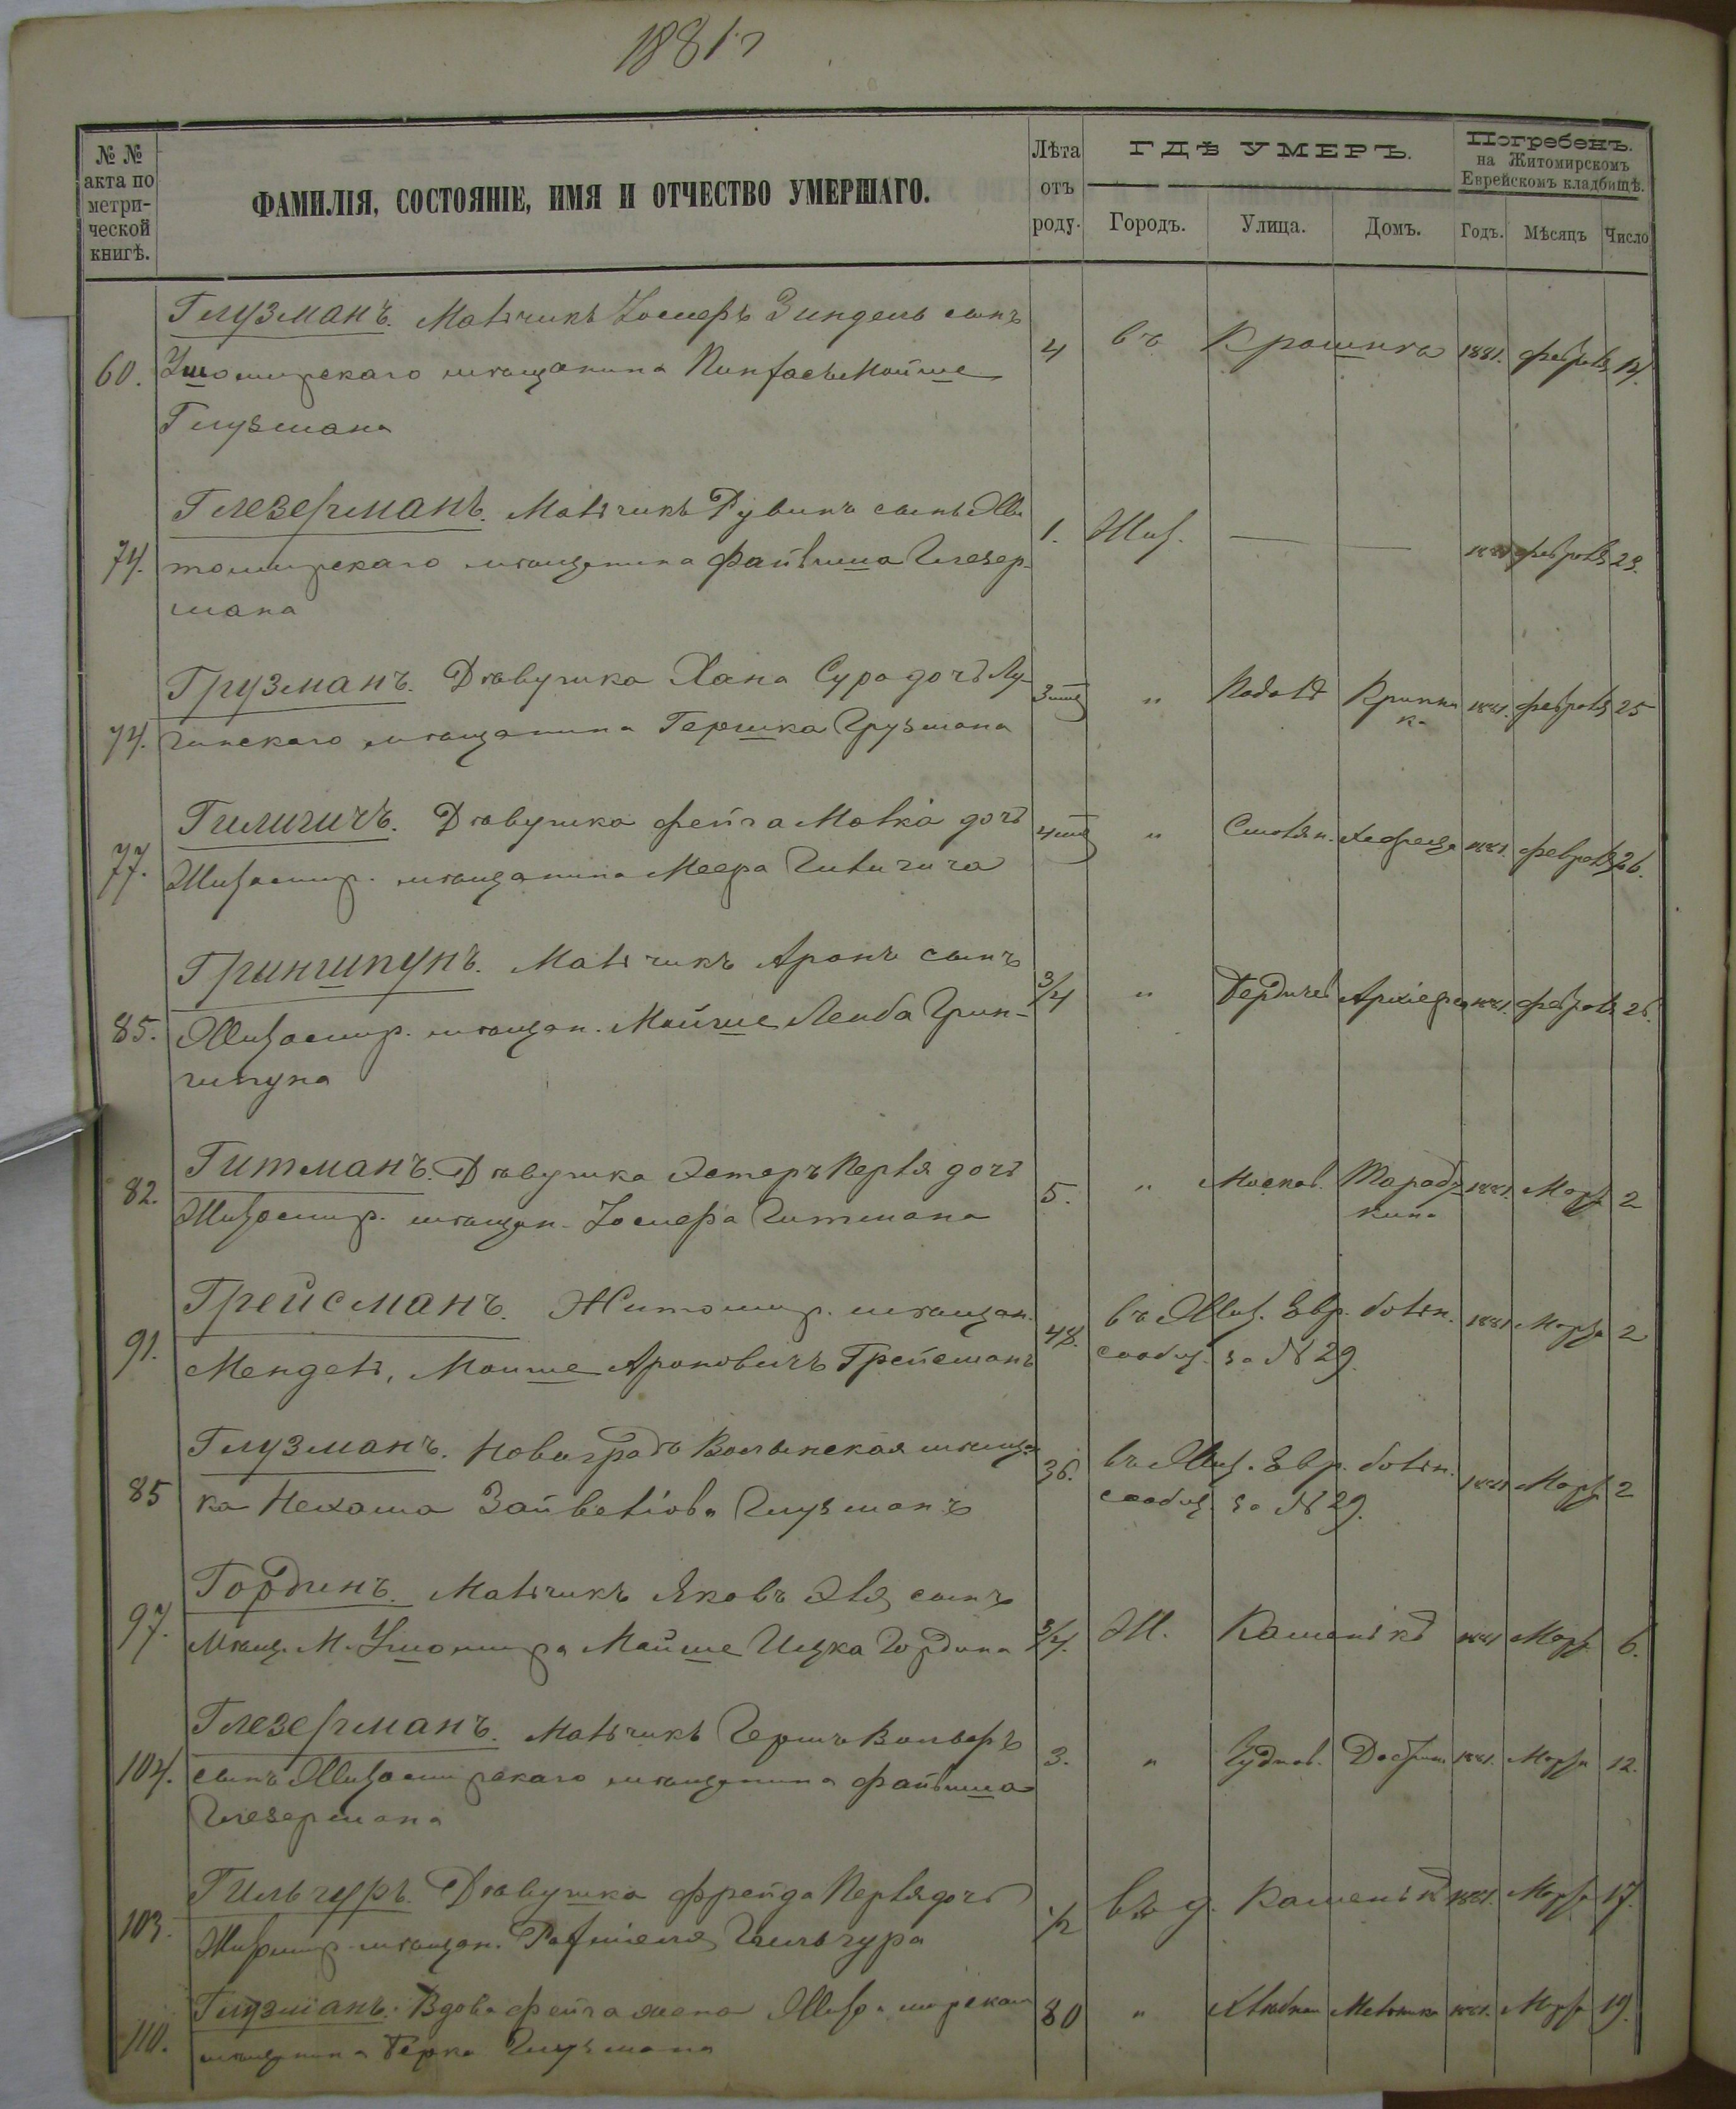 1881 г
№ №
акта по
метри-
ческой
книгѣ.
ФАМИЛІЯ, СОСТОЯНІЕ, ИМЯ И ОТЧЕСТВО УМЕРШАГО.
Лѣта
отъ
роду.
ГДѢ УМЕРЪ.
Городъ. Улица. Домъ.
Погребенъ.
на Житомирскомъ
Еврейскомъ кладбищѣ.
Годъ. Мѣсяцъ Число
Глузманъ. Мальчикъ Іосифъ Зиндель сынъ
60. Ушомирскаго мѣщанина Пинхасъ Мойше 4 въ Крошнѣ 1881. февраля
Глузмана
Глезерманъ. Мальчикъ Рувинъ сынъ Жи
74. томирскаго мѣщанина Файвиша Глезер- 1. Жит. — — 1881 февраля 23.
мана
Грузманъ. Дѣвушка Хана Сура дочь Лу-
74. гинскаго мѣщанина Гершка Грузмана 3 мѣц " Подоль 1881. февраля 25
Гиличичъ. Дѣвушка Фейга Малка дочь
77. Житомир. мѣщанина Меера Гиличича 4 мѣц " Смолян. 1881. февраля 26.
Грингипунъ. Мальчикъ Аронъ сынъ
85. Житомир. мѣщан. Мойше Лейба Грин- 3/4 " Бердичев Архіерея 1881. февраля 26.
гипуна
Гитманъ. Дѣвушка Эстеръ Перля дочь
82. Житомир. мѣщан. Іосифа Гитмана 5. " Москов. 1881. Марта 2
Грейсманъ. Житомир. мѣщан.
91. Мендель, Мойше Ароновичъ Грейсманъ 48. въ Жит. Евр. больн. сообщ. за № 29. 1881 Марта 2
Глузманъ. Новоградъ Волынская мѣщан
85 ка Нехама Зайвеліова Глузманъ 36. въ Жит. Евр. больн. сообщ. за № 29. 1881 Марта 2
Гординъ. Мальчикъ Яковъ Эля сынъ
97. Мѣщ. М. Ушомира Мойше Ицка Гордина 3/4. Ж. 1881 Марта 6.
Глезерманъ. Мальчикъ Гершъ Вольфъ
104. сынъ Житомирскаго мѣщанина Файвиша 3. " Чуднов. 1881. Марта 12.
Глезермана
Гильгуръ. Дѣвушка Фрейда Перля дочь
103. Житомир. мѣщан. Рафміеля Гильгура 1/2 въ д. 1881. Марта 17.
Глузманъ. Вдова Фейга жена Житомирскаго
110. мѣщанина Берка Глузмана 80 " 1881. Марта 19.